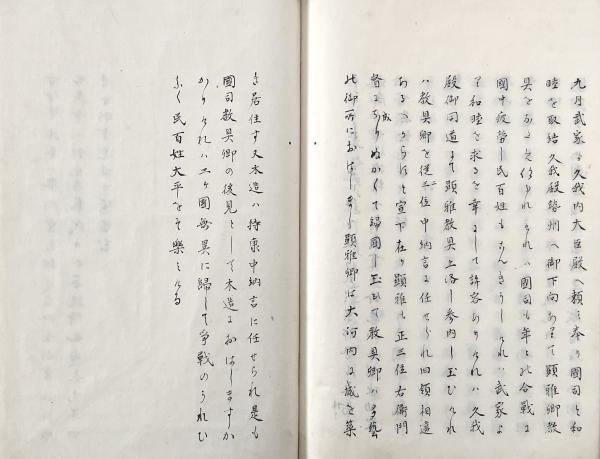 九月武家ゟ久我内大臣殿へ頼ミ奉り國司と和
睦を取結久我殿勢州へ御下向あつて顕雅卿教
具をなため給けれハ國司も年々の合戦に
國中疲労し民百姓もなんきうしけれハ武家よ
り和睦を求るを幸として許容ありけれハ久我
殿御同道にて顕雅教具上洛し参内し玉ひけれ
ハ教具卿を従三位中納言に任せられ四領相違
あるへからすと宣下在り顕雅も正三位右衛門
督になりぬかくて帰國し玉ひて教具卿ハ多藝
此御所におはしまし顕雅卿は大河内に城を築
き居住す又木造ハ持康中納言に任せられ是も
國司教具卿の後見として木造におはしますか
かりけれハ三ヶ國無異に歸して争戦のうれひ
なく民百姓太平をそ樂ミける